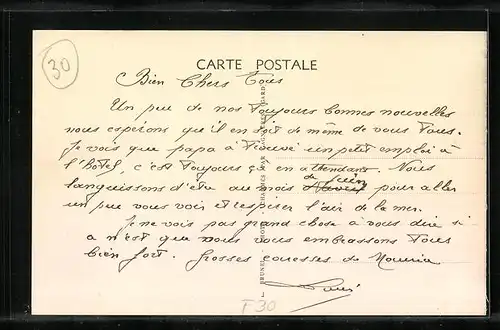 30
CARTE POSTALE
Bien Chers Tous
Un peu de nos toujours bonnes nouvelles
nous espérons qu'il en soit de même de vous tous.
Je vois que papa à trouvé un petit emploi à
l'hôtel, c'est toujours ça en attendant. Nous
languissons d'être au mois de juin pour aller
un peu vous voir et respirer l'air de la mer.
Je ne vois pas grand chose à vous dire si
a n'est que nous vous embrassons tous
bien fort. Grosses caresses de
T 30